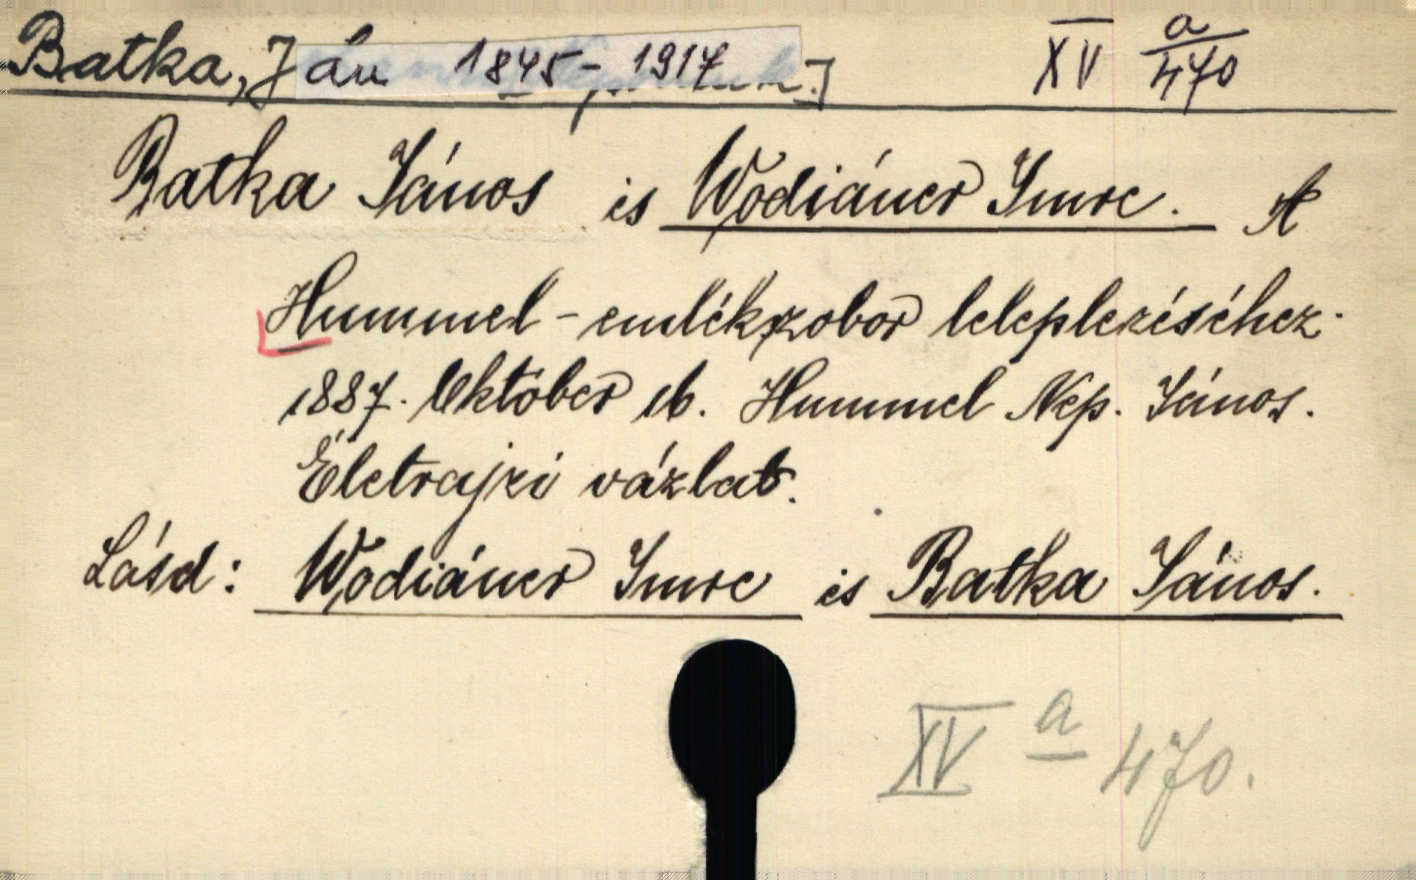 Batka, Ján 1845-1917 XV a/470
Batka János és Wodiáner Imre. A
Hummel-emlékszobor leleplezéséhez.
1887. Október 16. Hummel Nep. János.
Életrajzi vázlat.
Lásd: Wodiáner Imre és Batka János.
XV a 470.